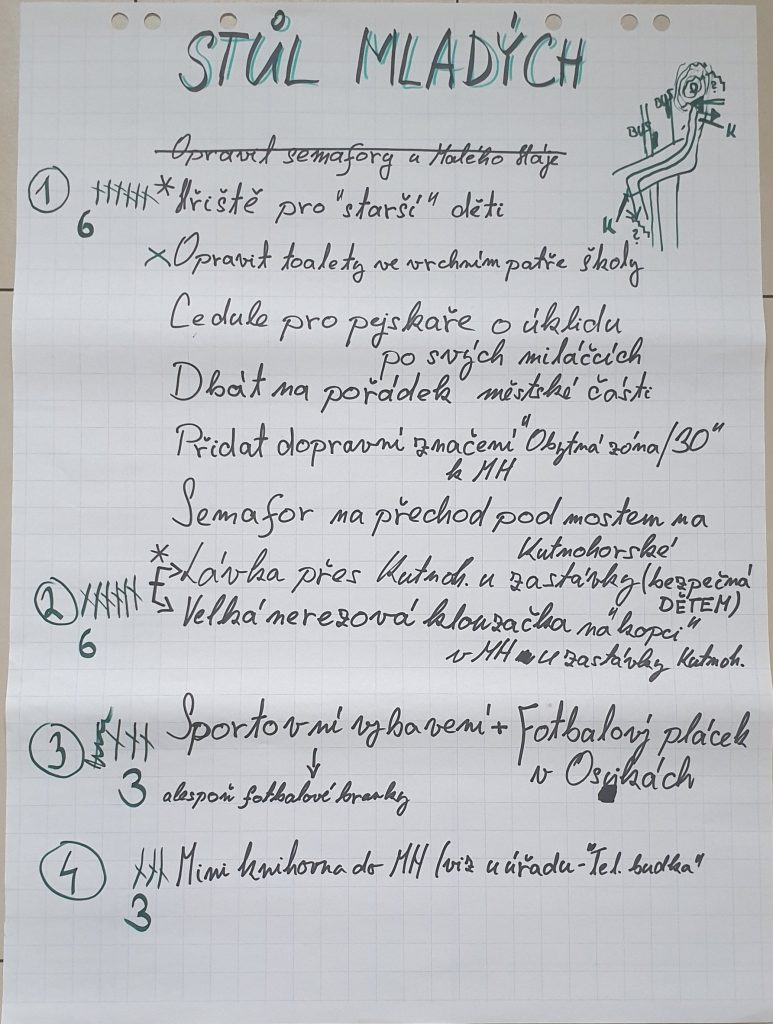 STŮL MLADÝCH
BUS
BUS
K
K
??
Opravit semafory u Malého Háje
1
6
* Hřiště pro "starší" děti
× Opravit toalety ve vrchním patře školy
Cedule pro pejskaře o úklidu
po svých miláčcích
Dbát na pořádek městské části
Přidat dopravní značení "Obytná zóna/30"
k MH
Semafor na přechod pod mostem na
Kutnohorské
2
6
* Lávka přes Kutnoh. u zastávky (bezpečná
DĚTEM)
Velká nerezová klouzačka na "kopci"
v MH u zastávky Kutnoh.
3
3
Sportovní vybavení + Fotbalový plácek
v Osikách
alespoň fotbalové branky
4
3
Mini knihovna do MH (viz u úřadu - "Tel. budka"